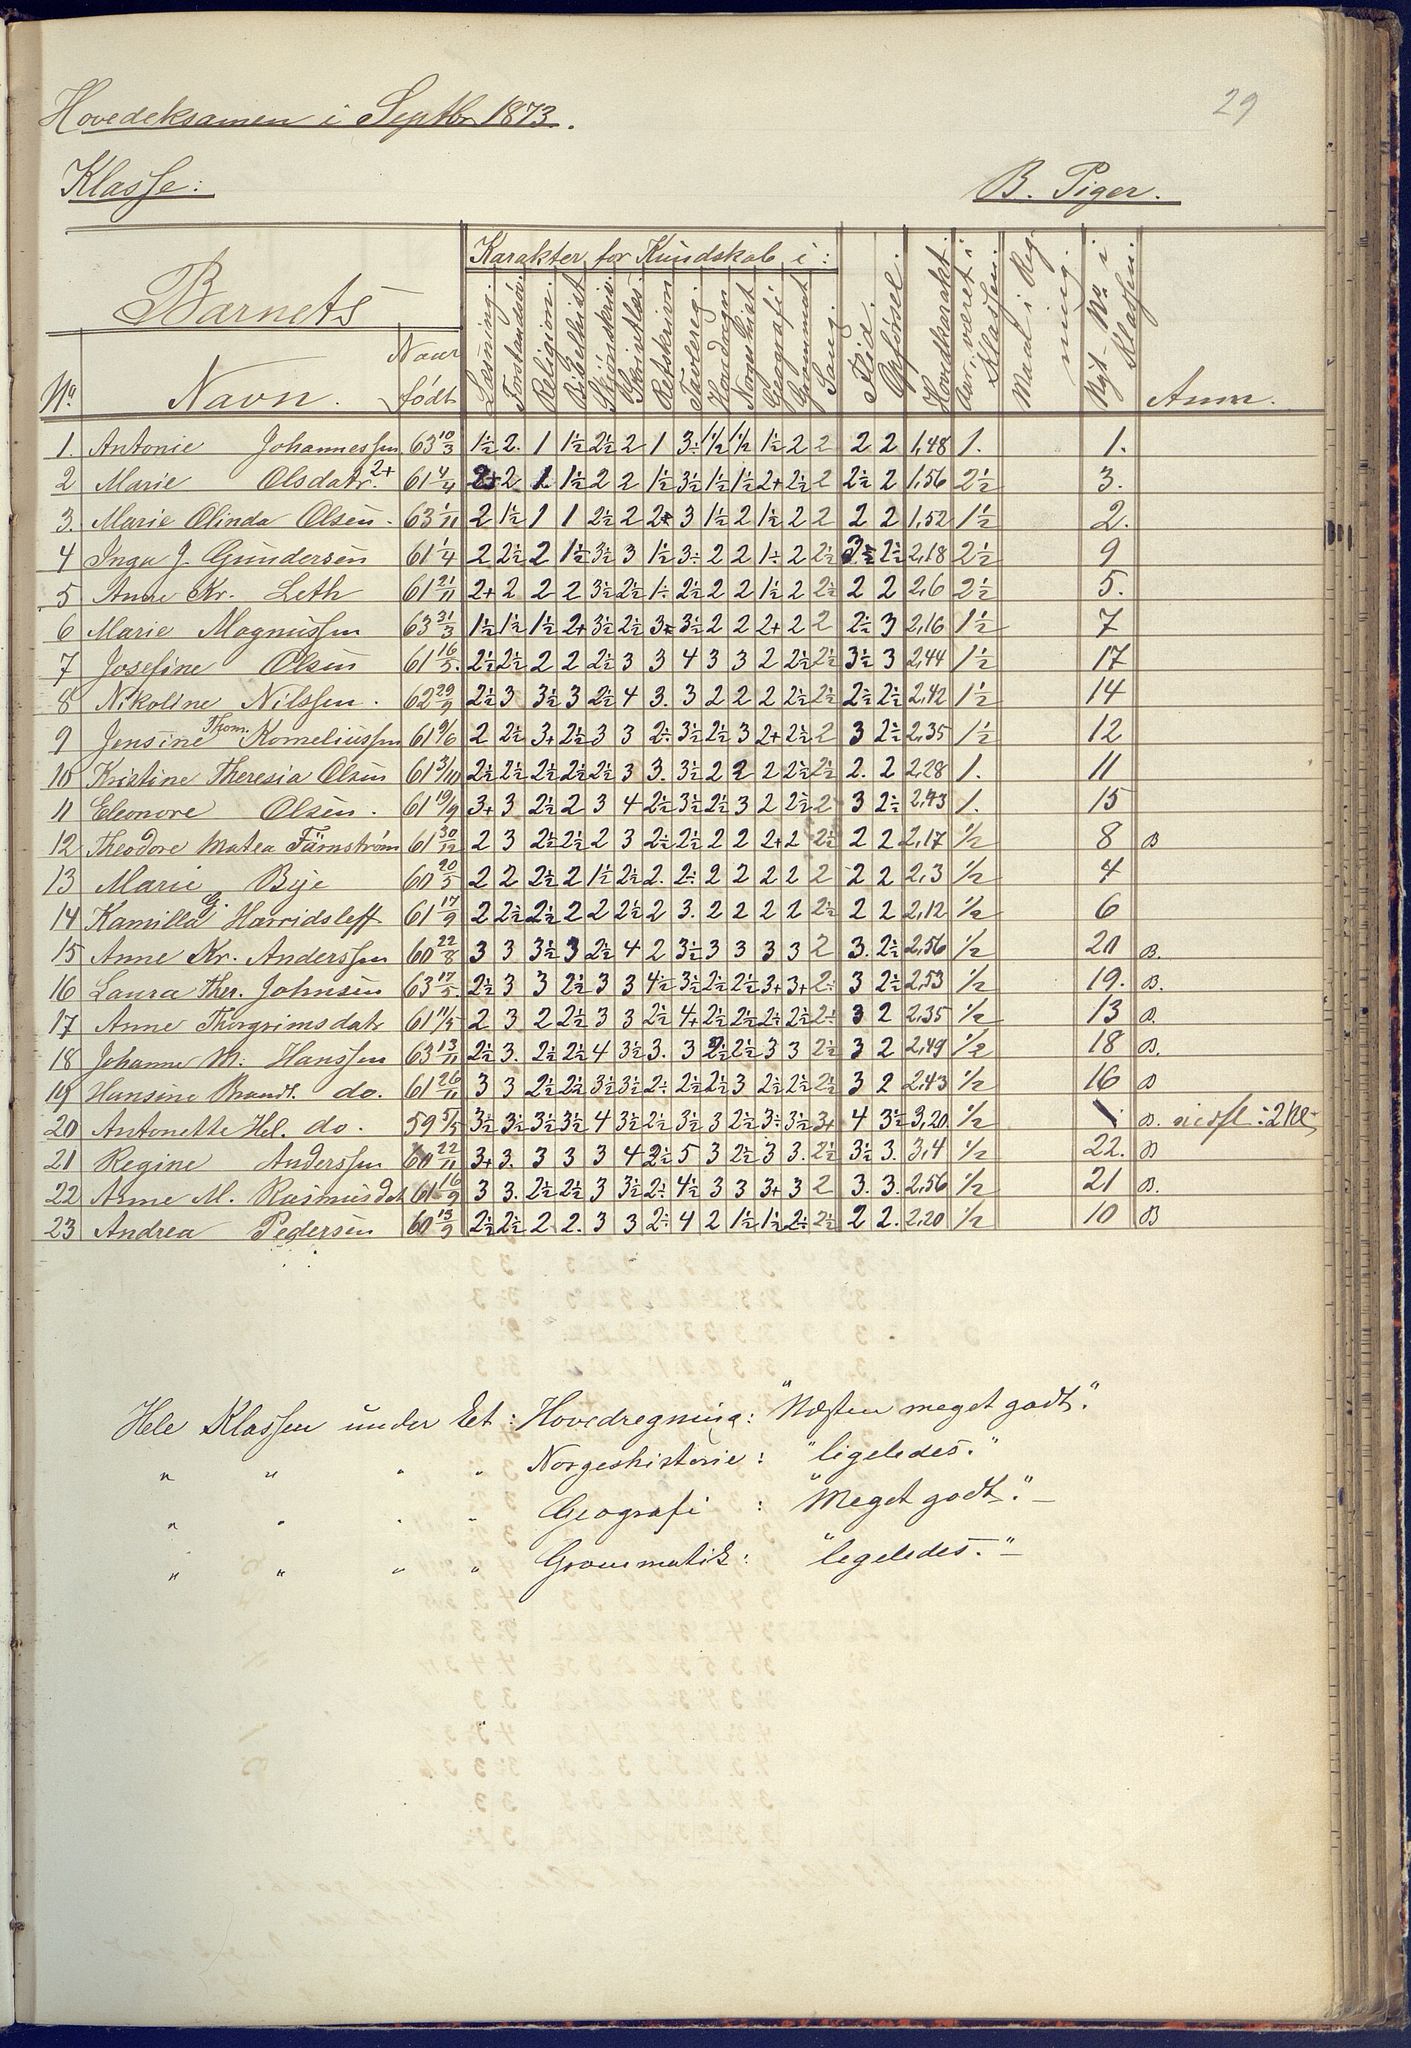 29
Hovedeksamen i Septbr 1873.
Klasse: B. Piger.
Karakter for Kundskab i:
Barnets
No. Navn. Naar født Læsning. Forstandsöv. Religion. Bibelhist Skjönskriv. Skrivtlæs. Retskrivn Tavlereg. Hovedregn Norgeshist Geografi Grammat Sang. Flid. Opførsel. Hovedkarakt. Aar været i Klassen. Maal i Regning. Nyt No i Klassen. Anm.
1. Antonie Johannessen 63 10/3 1½ 2. 1 1½ 2½ 2 1 3÷ 1½ 1½ 1½ 2 2 2 2 1,48 1. 1.
2 Marie Olsdatr. 2+ 61 4/4 2+ 2 1 1½ 2 2 1½ 3½ 1½ 1½ 2+ 2½ 2 2½ 2 1,56 2½ 3.
3. Marie Olinda Olsen. 63 1/11 2 1½ 1 1 2½ 2 2+ 3 1½ 2 1½ 2 2 2 2 1,52 1½ 2.
4 Inga J. Gundersen 61 1/4 2 2½ 2 1½ 3½ 3 1½ 3÷ 2 2 1÷ 2 2½ 3½ 2½ 2,18 2½ 9
5 Anne Kr. Leth 61 21/11 2+ 2 2 2 3½ 2½ 1÷ 2½ 2 2 1½ 2 2½ 2 2 2,6 2½ 5.
6 Marie Magnussen 63 31/3 1½ 1½ 1½ 2+ 3½ 2½ 3+ 3½ 2 2 2+ 2 2 2½ 3 2,16 1½ 7
7 Josefine Olsen 61 16/5. 2½ 2½ 2 2 2½ 3 3 4 3 3 2 2½ 2½ 3½ 3 2,44 1½ 17
8 Nikoline Nilssen. 62 29/9 2½ 3 3½ 3 2½ 4 3. 3 2 2 2 2½ 2½ 2½ 2½ 2,42 1½ 14
9 Jensine Thom. Korneliussen 61 9/6 2 2½ 3+ 2½ 3 3 2÷ 3½ 2½ 3 2+ 2½ 2 3 2½ 2,35 1½ 12
10 Kristine Theresia Olsen 61 3/10 2½ 2½ 2½ 2½ 2½ 3 3. 3½ 2 2 2 2½ 2½ 2. 2 2,28 1. 11
11 Eleonore Olsen. 61 19/9 3+ 3 2½ 2 3 4 2½ 3½ 2½ 3 2 2½ 2÷ 3 2½ 2,43 1. 15
12 Theodore Matea Färnström 61 30/12 2 3 2½ 2½ 2 3 2½ 2½ 2 2 2+ 2 2½ 2 2 2,17 ½ 8 B
13 Marie Bye 60 20/5 2 2 2½ 2 1½ 2½ 2. 2÷ 2 2 2 2 2 2 2 2,3 ½ 4
14 Kamilla G. Harridsleff 61 17/9 2 2½ 2½ 2 2 2½ 2 3. 2 2 2 2 2½ 2 2 2,12 ½ 6
15 Anne Kr. Anderssen 60 22/8 3 3 3½ 3 2½ 4 2 3½ 3 3 3 3 2 3. 2½ 2,56 ½ 20 B.
16 Laura Ther. Johnsen 63 17/5. 2½ 3 3 2½ 3 3 4½ 3½ 2½ 2½ 3+ 3+ 2÷ 3 2½ 2,53 ½ 19. B.
17 Anne Thorgrimsdatr 61 11/5 2 3 2 2½ 3 3 2½ 4+ 2½ 2½ 2÷ 2½ 2÷ 3 2 2,35 ½ 13 B.
18 Johanne M. Hanssen 63 13/11 2½ 3. 2½ 2½ 4 3½ 3. 3 2½ 2½ 3 3 2½ 3 2 2,49 ½ 18 B.
19 Hansine Brandt. do. 61 26/11 3 3 2½ 2½ 3½ 3½ 2÷ 2½ 2½ 3 2½ 2½ 2½ 3 2 2,43 ½ 16 B
20 Antonette Hel. do. 59 5/5 3½ 3½ 3½ 3½ 4 3½ 2½ 3½ 3 2½ 3÷ 3½ 3+ 4 3½ 3,20 ½ B.
21 Regine Anderssen 60 22/11 3+ 3. 3 3 3 4 2½ 5 3 2½ 3 3. 2½ 3½ 3. 3,4 ½ 22. B
22 Anne M. Rasmusdat 61 16/9 3 3. 2½ 2½ 3 3½ 2÷ 4½ 3 3 3+ 3 2 3. 3. 2,56 ½ 21 B.
23 Andrea Pedersen 60 13/9 2½ 2½ 2 2. 3 3 2÷ 4 2 1½ 1½ 2÷ 2½ 2 2. 2,20 ½ 10 B
Hele Klassen under Et: Hovedregning: "Næsten meget godt."
" " " " Norgeshistorie: "ligeledes."
" " " " Geografi: "Meget godt."
" " " " Grammatik: "ligeledes."